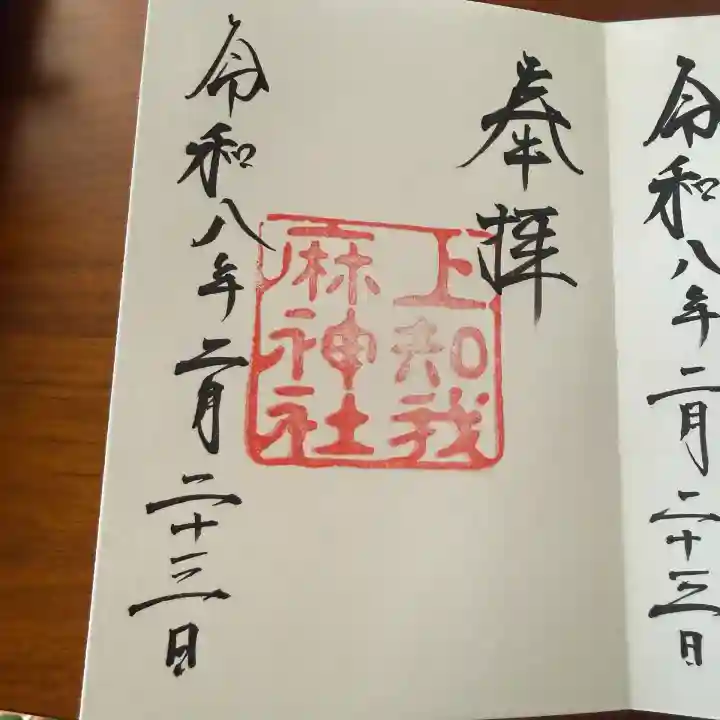 令和八年二月二十三日
奉拝
上知我
麻神社
令和八年二月二十三日